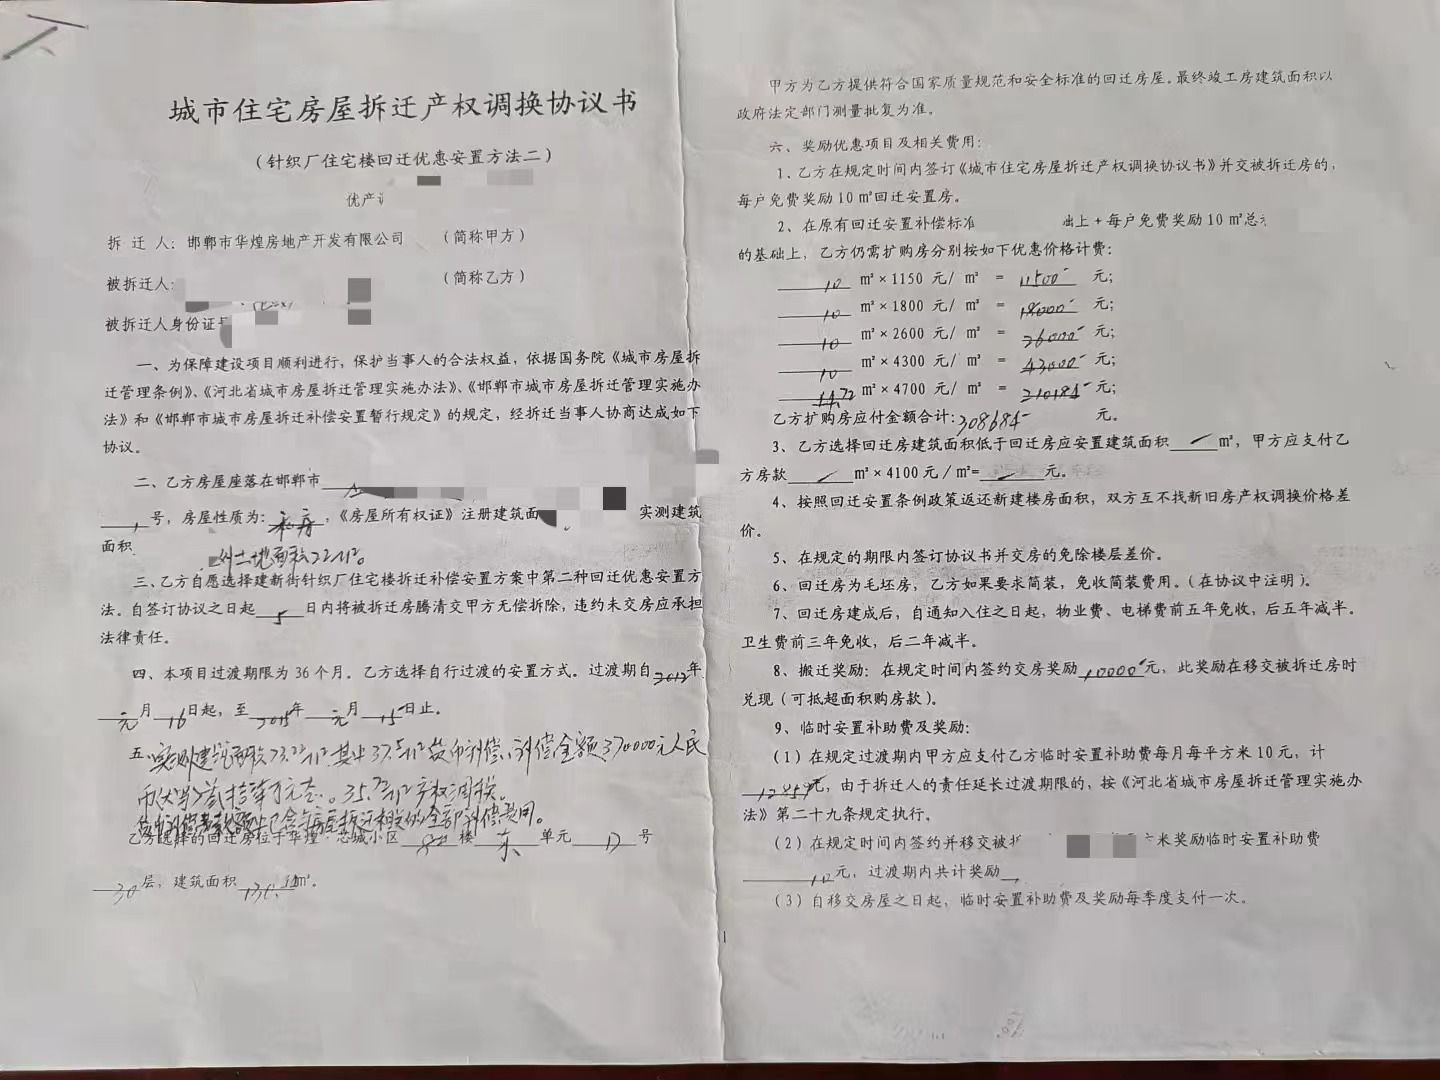 城市住宅房屋拆迁产权调换协议书
（针织厂住宅楼回迁优惠安置方法二）
优产
拆 迁 人：邯郸市华煌房地产开发有限公司 （简称甲方）
被拆迁人： （简称乙方）
被拆迁人身份证
一、为保障建设项目顺利进行，保护当事人的合法权益，依据国务院《城市房屋拆
迁管理条例》、《河北省城市房屋拆迁管理实施办法》、《邯郸市城市房屋拆迁管理实施办
法》和《邯郸市城市房屋拆迁补偿安置暂行规定》的规定，经拆迁当事人协商达成如下
协议。
二、乙方房屋座落在邯郸市
号，房屋性质为： ，《房屋所有权证》注册建筑面 实测建筑
面积
土地面积22m²。
三、乙方自愿选择建新街针织厂住宅楼拆迁补偿安置方案中第二种回迁优惠安置方
法。自签订协议之日起 5 日内将被拆迁房腾清交甲方无偿拆除，违约未交房应承担
法律责任。
四、本项目过渡期限为 36 个月。乙方选择自行过渡的安置方式。过渡期自 2012 年
元 月 16 日起，至 2015 年 元 月 15 日止。
五、实测建筑面积73.22m²，其中37.5m²货币补偿，补偿金额370000元人民
币(大写)叁拾柒万元整。35.72m²产权调换。
包含与房屋拆迁相关的全部补偿费用。
乙方选择的回迁房位于华煌·芯城小区 楼 东 单元 号
30 层，建筑面积 m²。
甲方为乙方提供符合国家质量规范和安全标准的回迁房屋。最终竣工房建筑面积以
政府法定部门测量批复为准。
六、奖励优惠项目及相关费用：
1、乙方在规定时间内签订《城市住宅房屋拆迁产权调换协议书》并交被拆迁房的，
每户免费奖励 10 ㎡回迁安置房。
2、在原有回迁安置补偿标准 础上＋每户免费奖励 10 ㎡总
的基础上，乙方仍需扩购房分别按如下优惠价格计费：
10 m²×1150 元/ m² = 11500 元；
10 m²×1800 元/ m² = 18000 元；
10 m²×2600 元/ m² = 26000 元；
10 m²×4300 元/ m² = 43000 元；
44.72 m²×4700 元/ m² = 210184 元；
乙方扩购房应付金额合计：308684 元。
3、乙方选择回迁房建筑面积低于回迁房应安置建筑面积 m²，甲方应支付乙
方房款 m²×4100 元／m²= 元。
4、按照回迁安置条例政策返还新建楼房面积，双方互不找新旧房产权调换价格差
价。
5、在规定的期限内签订协议书并交房的免除楼层差价。
6、回迁房为毛坯房，乙方如果要求简装，免收简装费用。（在协议中注明）。
7、回迁房建成后，自通知入住之日起，物业费、电梯费前五年免收，后五年减半。
卫生费前三年免收，后二年减半。
8、搬迁奖励：在规定时间内签约交房奖励 10000 元，此奖励在移交被拆迁房时
兑现（可抵超面积购房款）。
9、临时安置补助费及奖励：
（1）在规定过渡期内甲方应支付乙方临时安置补助费每月每平方米 10 元，计
12859 元，由于拆迁人的责任延长过渡期限的，按《河北省城市房屋拆迁管理实施办
法》第二十九条规定执行。
（2）在规定时间内签约并移交被 米奖励临时安置补助费
10 元，过渡期内共计奖励
（3）自移交房屋之日起，临时安置补助费及奖励每季度支付一次。
1